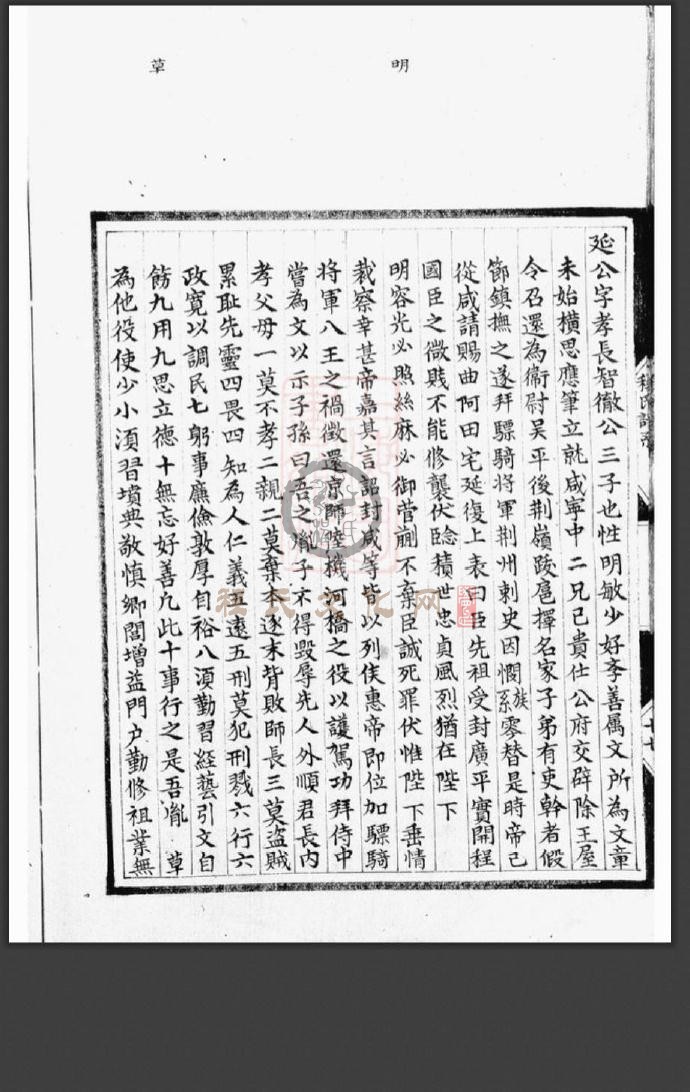 明
草
延公字孝長智徹公三子也性明敏少好李善属文所為文章
未始横思應筆立就咸寧中二兄已貴仕公府交辟除王屋
令召還為衞尉吴平後荆嶺踆扈擇名家子弟有吏幹者假
節鎮撫之遂拜驃騎將軍荆州刺史因憫系族零替是時帝已
從咸請賜曲阿田宅延復上表曰臣先祖受封廣平實開程
國臣之微賎不能修襲伏念積世忠貞風烈猶在陛下
明容光必照絲麻必御菅蒯不棄臣誠死罪伏惟陛下垂情
裁察幸甚帝嘉其言詔封咸等皆以列侯惠帝即位加驃騎
將軍八王之禍徴還京師陸機河橋之役以護駕功拜侍中
嘗為文以示子孫曰吾之胤子不得毀辱先人外順君長内
孝父母一莫不孝二親二莫棄本逐末背敗師長三莫盗賊
累耻先靈四畏四知為人仁義五遠五刑莫犯刑戮六行六
政寛以調民七躬事廉儉敦厚自裕八湏勤習經藝引文自
飭九用九思立德十無忘好善凢此十事行之是吾胤草
為他役使少小湏習墳典敬慎鄉閭增益門户勤修祖業無
程氏文化网